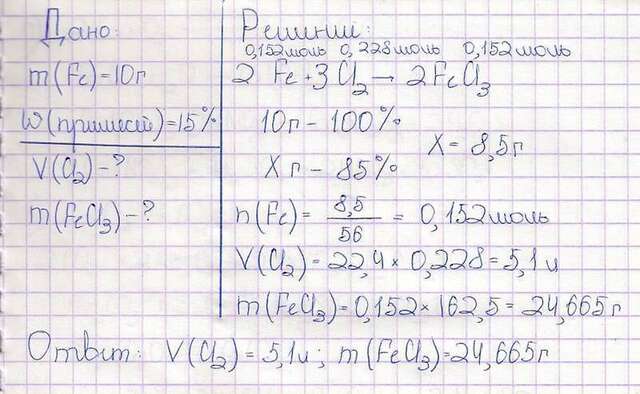 Дано:
m(Fe)=10г
W(примесей)=15%
V(Cl₂)-?
m(FeCl₃)-?
Решении:
0,152моль 0,228моль 0,152моль
2Fe+3Cl₂→2FeCl₃
10г-100%
Xг-85%
X=8,5г
n(Fe)=8,5/56=0,152моль
V(Cl₂)=22,4×0,228=5,1л
m(FeCl₃)=0,152×162,5=24,665г
Ответ: V(Cl₂)=5,1л; m(FeCl₃)=24,665г